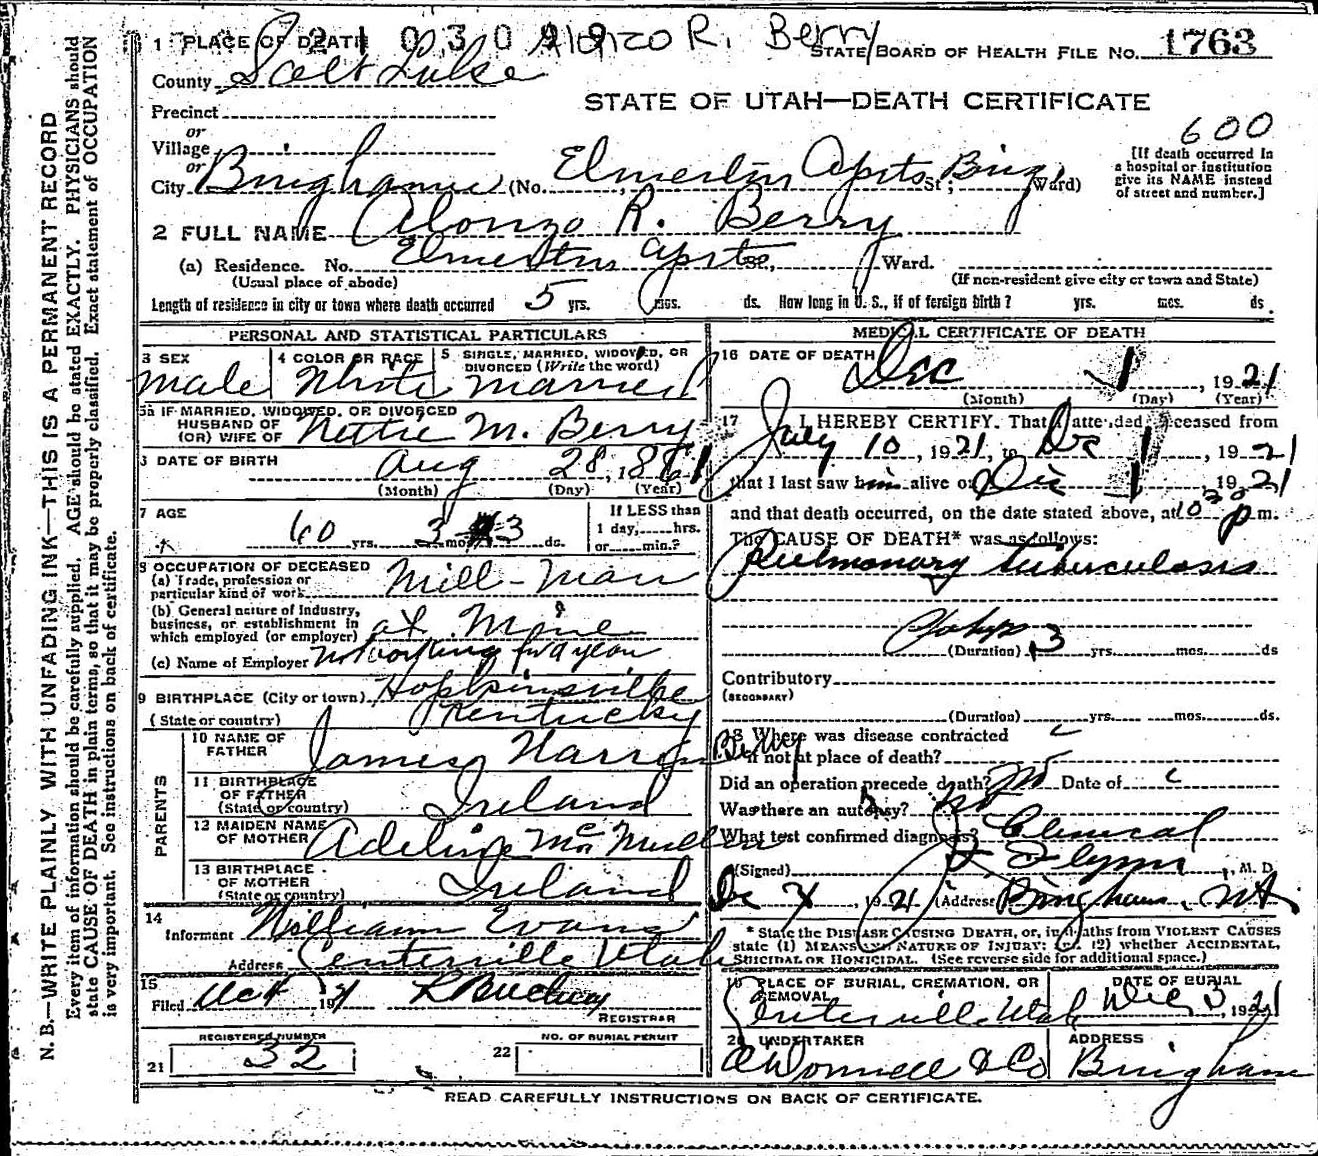 N. B.—WRITE PLAINLY WITH UNFADING INK—THIS IS A PERMANENT RECORD
Every item of information should be carefully supplied. AGE should be stated EXACTLY. PHYSICIANS should
state CAUSE OF DEATH in plain terms, so that it may be properly classified. Exact statement of OCCUPATION
is very important. See instructions on back of certificate.
1 PLACE OF DEATH
Alonzo R. Berry
STATE BOARD OF HEALTH FILE NO. 1763
County Salt Lake
STATE OF UTAH—DEATH CERTIFICATE
Precinct
or
Village
600
[If death occurred in
a hospital or institution
give its NAME instead
of street and number.]
or
City Bingham (No. Elmerton Apts St; Bing Ward)
2 FULL NAME Alonzo R. Berry
(a) Residence. No. Elmerton Apts St., Ward.
(Usual place of abode) (If non-resident give city or town and State)
Length of residence in city or town where death occurred 5 yrs. mos. ds. How long in U. S., if of foreign birth? yrs. mos. ds.
PERSONAL AND STATISTICAL PARTICULARS
3 SEX 4 COLOR OR RACE 5 SINGLE, MARRIED, WIDOWED, OR
DIVORCED (Write the word)
male White married
5a IF MARRIED, WIDOWED, OR DIVORCED
HUSBAND OF
(OR) WIFE OF Nettie M. Berry
6 DATE OF BIRTH Aug 28, 1861
(Month) (Day) (Year)
7 AGE 60 yrs. 3 mos. 3 ds.
If LESS than
1 day, hrs.
or min.?
8 OCCUPATION OF DECEASED
(a) Trade, profession or
particular kind of work Mill-man
(b) General nature of Industry,
business, or establishment in
which employed (or employer) at Mine
(c) Name of Employer not working for a year
9 BIRTHPLACE (City or town) Hopkinsville
(State or country) Kentucky
PARENTS
10 NAME OF
FATHER James Berry
11 BIRTHPLACE
OF FATHER
(State or country) Ireland
12 MAIDEN NAME
OF MOTHER Adeline McMullen
13 BIRTHPLACE
OF MOTHER
(State or country) Ireland
14
Informant William Evans
Address Centerville Utah
15
Filed 19
REGISTRAR
REGISTERED NUMBER
21 32
NO. OF BURIAL PERMIT
22
MEDICAL CERTIFICATE OF DEATH
16 DATE OF DEATH Dec 1, 1921
(Month) (Day) (Year)
17 I HEREBY CERTIFY. That I attended deceased from
July 10, 1921, to Dec 1, 1921
that I last saw him alive on Dec 1, 1921
and that death occurred, on the date stated above, at 10 p m.
The CAUSE OF DEATH* was as follows:
Pulmonary tuberculosis
(Duration) 3 yrs. mos. ds
Contributory
(SECONDARY)
(Duration) yrs. mos. ds.
18 Where was disease contracted
if not at place of death?
Did an operation precede death? no Date of
Was there an autopsy? no
What test confirmed diagnosis? Clinical
(Signed) Flynn, M. D.
Dec , 1921 (Address Bingham, Ut.
* State the DISEASE CAUSING DEATH, or, in deaths from VIOLENT CAUSES
state (1) MEANS AND NATURE OF INJURY: (2) whether ACCIDENTAL,
SUICIDAL OR HOMICIDAL. (See reverse side for additional space.)
19 PLACE OF BURIAL, CREMATION, OR
REMOVAL
Centerville Utah
DATE OF BURIAL
Dec 3, 1921
20 UNDERTAKER
O'Donnell & Co
ADDRESS
Bingham
READ CAREFULLY INSTRUCTIONS ON BACK OF CERTIFICATE.